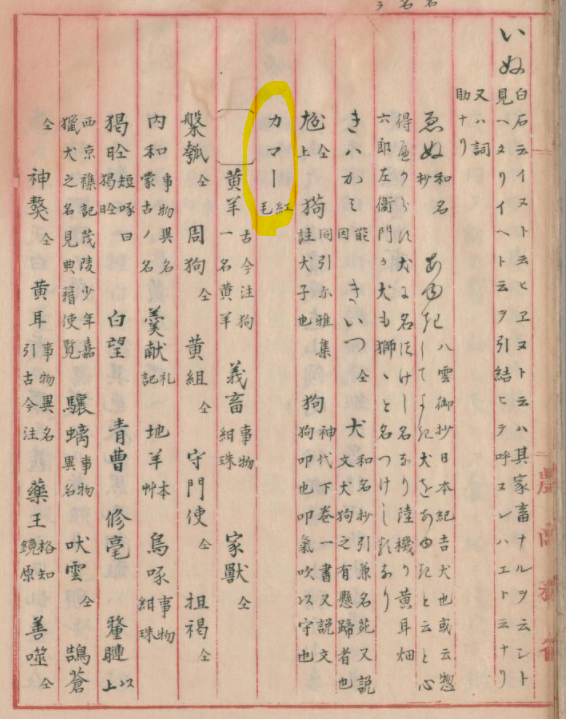 いぬ 白石云イヌト云ヒヱヌト云ハ其家畜ナルヲ云ント
見ヘタリイヘト云ヲ引結ヒテ呼ヌレハエトミナリ
又ハ詞
助ナリ
ゑぬ 和名抄 あゆき 八雲御抄日本紀吉犬也或云惣
してよき犬をあゆきと云と心
犬に名つけし名なり陸機り黄耳畑
六郎左衛門か犬も獅々と名つけし類なり
きハかミ 能因 きいつ 仝 犬 和名抄引兼名苑又説文犬狗之有懸蹄者也
尨 仝上 同引尓雅集註犬子也 狗 神代下巻一書又説文狗叩也叩氣吹以守也
カマー 紅毛
黄羊 古今注狗一名黄羊 義畜 事物紺珠 家獸 仝
槃瓠 仝 周狗 仝 黄組 仝 守門使 仝 抯褐 仝
内和 事物異名蒙古ノ名 羹献 礼記 地羊 本艸 烏啄 事物紺珠
短喙曰 白望 青曹 修毫 以上
西京襍記茂陵少年嘉猟犬之名見典籍便覧 驤螭 事物異名 吠雲 仝 鵠蒼
仝 神獒 仝 黄耳 事物異名引古今注 藥王 格知鏡原 善噬 仝